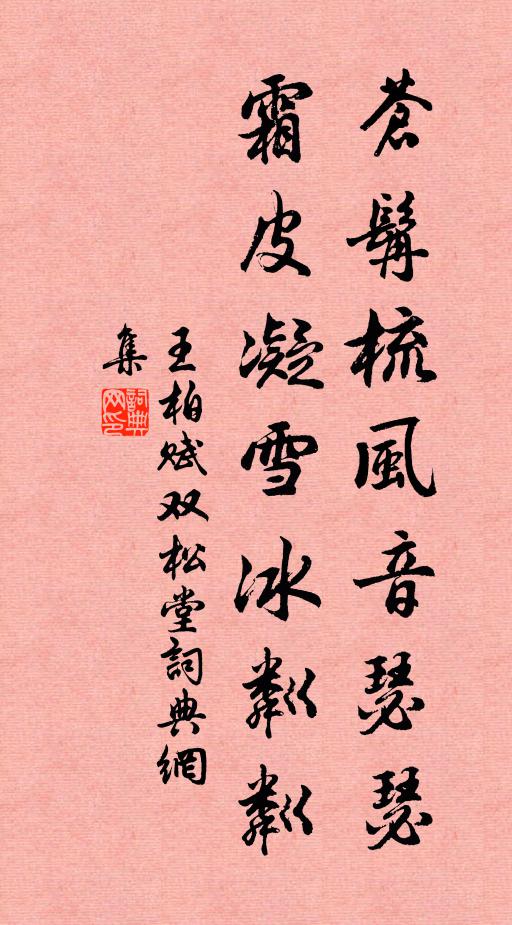 蒼髯梳風音瑟瑟
霜皮凝雪冰粼粼
王柏赋双松堂詞典網
集
詞典
网印